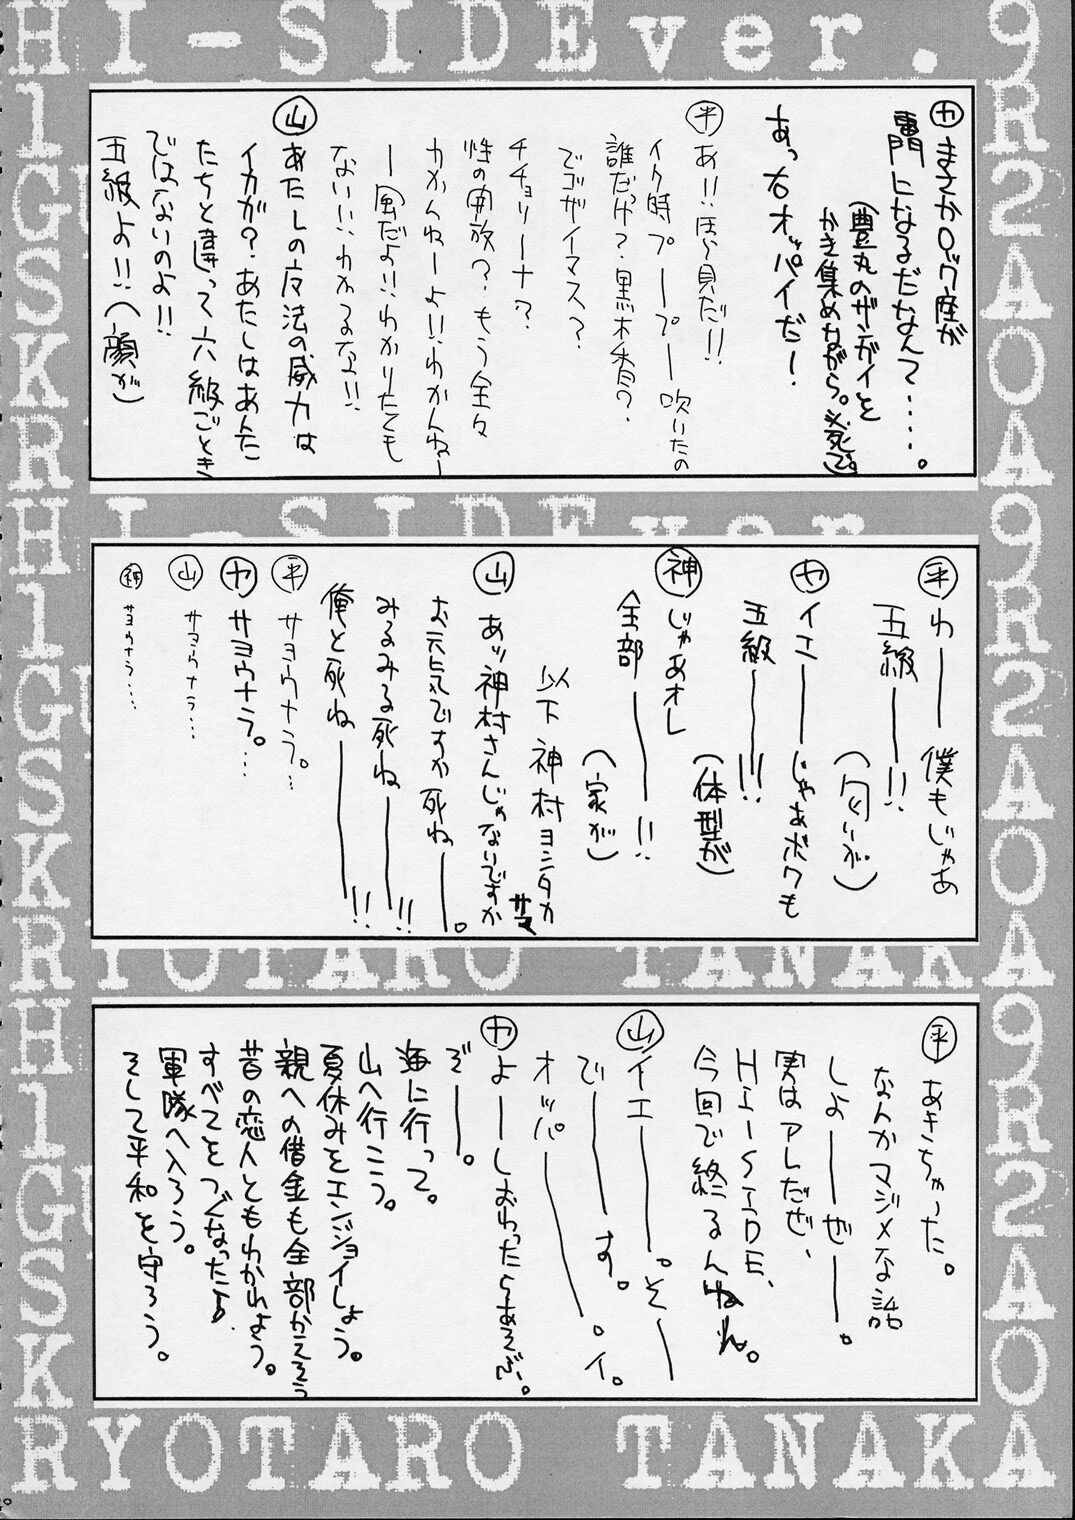 HI-SIDEver.
9R2AOA9R2AOA9R2AOA
HlGSKRHlGSKRHlGSKR
カ まさかロック座が
専門になるだなんて・・・・。
(豊丸のザンガイを
かき集めながら。必死で。)
あっ右オッパイだー!
平 あ!!ほら見だ!!
イク時プープー吹いたの
誰だっけ?黒木香?
でゴザイマス?
チチョリーナ?
性の開放?もう全々
わかんねーよ!!わかんねー
ー風だよ!!わかりたくも
ない!!わかるな!!
山 あたしの反法の威力は
イカが?あたしはあんた
たちと違って六級ごとき
ではないのよ!!
五級よ!!(顔が)
HI-SIDEver.
平 わー 僕もじゃあ
五級ー!!
(匂いが)
カ イエーじゃあボクも
五級ー!!!
(体型が)
神 じゃあオレ
全部ー!!
(家が)
以下神村ヨシタカ
サマ
山 あッ神村さんじゃないですか
お元気ですか死ねー。
みるみる死ねー!!
俺と死ねー!!
平 サヨウナラ。…
カ サヨウナラ。…
山 サヨウナラ…
神 サヨウナラ…
RYOTARO TANAKA
平 あきちゃった。
なんかマジメな話
しよーぜー。
実はアレだぜ、
HI-SIDE、
今回で終るんねん。
山 イエー。そー
でーす。
オッパー。イ。
カ よーしおわったらあそぶ。
ぞー。
海に行って。
山へ行こう。
夏休みをエンジョイしよう。
親への借金も全部かえそう
昔の恋人ともわかれよう。
すべてをつぐなったら
軍隊へ入ろう。
そして平和を守ろう。
RYOTARO TANAKA